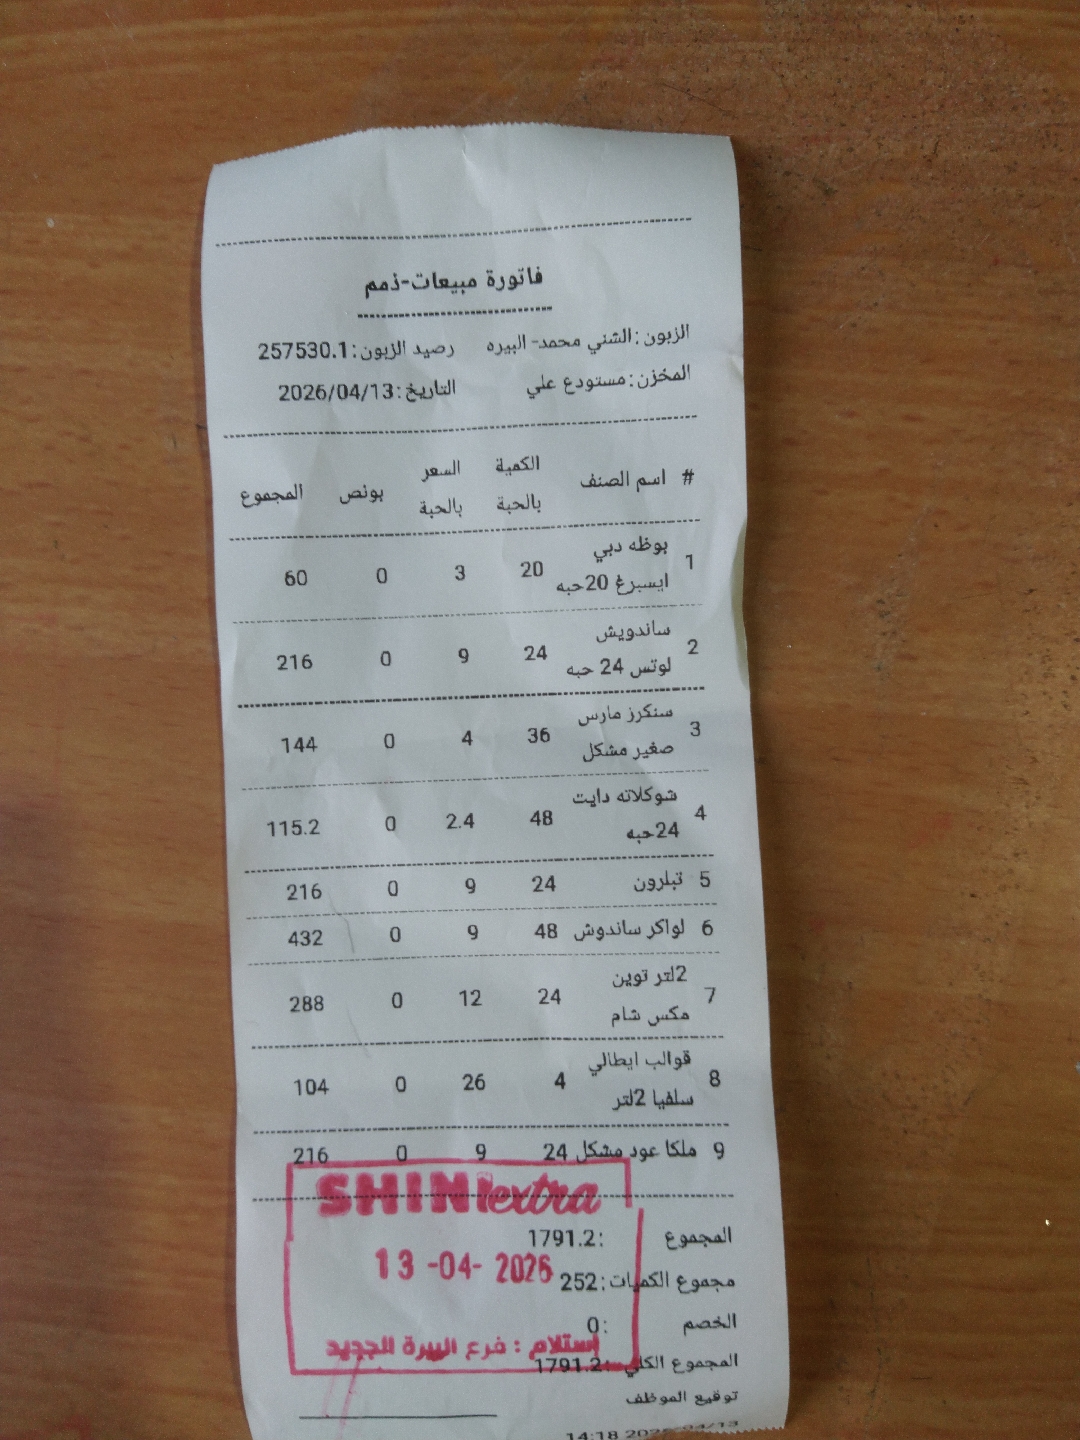 فاتورة مبيعات-ذمم
الزبون:الشني محمد- البيره رصيد الزبون:257530.1
المخزن:مستودع علي التاريخ:2026/04/13
# اسم الصنف الكمية بالحبة السعر بالحبة بونص المجموع
1 بوظه دبي ايسبرغ 20حبه 20 3 0 60
2 ساندويش لوتس 24 حبه 24 9 0 216
3 سنكرز مارس صغير مشكل 36 4 0 144
4 شوكلاته دايت 24حبه 48 2.4 0 115.2
5 تبلرون 24 9 0 216
6 لواكر ساندوش 48 9 0 432
7 2لتر توين مكس شام 24 12 0 288
8 قوالب ايطالي سلفيا 2لتر 4 26 0 104
9 ملكا عود مشكل 24 9 0 216
SHINI extra
المجموع :1791.2
13 -04- 2026
مجموع الكميات:252
الخصم :0
إستلام : فرع البيرة الجديد
المجموع الكلي :1791.2
توقيع الموظف
14:18